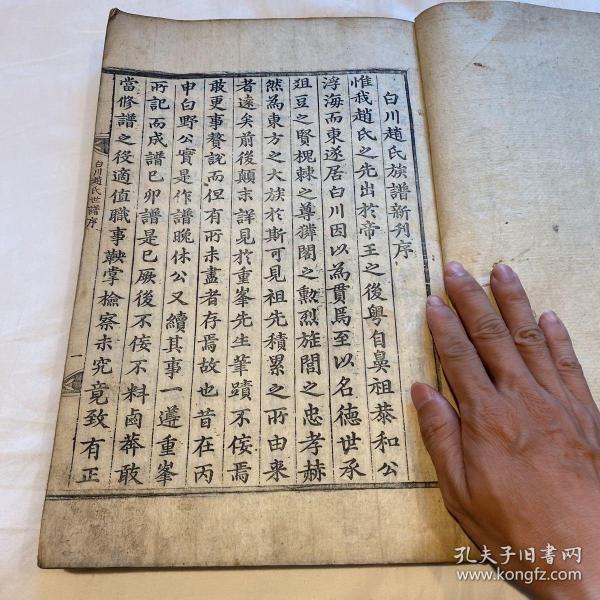 白川趙氏族譜新刋序
惟我趙氏之先出於帝王之後粤自鼻祖恭和公
浮海而東遂居白川因以為貫焉至以名德世承
俎豆之賢槐棘之尊獜閣之勲烈旌閭之忠孝赫
然為東方之大族於斯可見祖先積累之所由来
者遠矣前後顛末詳見於重峯先生筆蹟不侫焉
敢更事贅說而但有所未盡者存焉故也昔在丙
申白野公實是作譜晚休公又續其事一遵重峯
所記而成譜己卯譜是已厥後不侫不料鹵莽敢
當修譜之役適值職事鞅掌檢察未究竟致有正
白川趙氏世譜序
一
孔夫子旧书网
www.kongfz.com